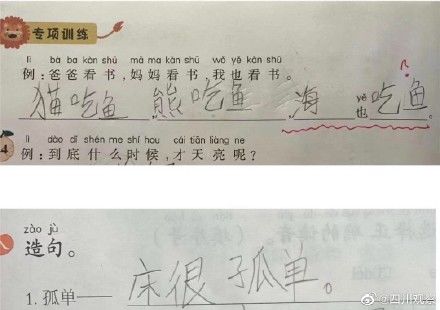 专项训练
lì bà ba kàn shū mā ma kàn shū wǒ yě kàn shū
例：爸爸看书，妈妈看书，我也看书。
猫吃鱼，熊吃鱼，海也吃鱼
yě
4
lì dào dǐ shén me shí hou cái tiān liàng ne
例：到底什么时候，才天亮呢？
zào jù
八、造句。
1. 孤单——床很孤单。
@四川观察